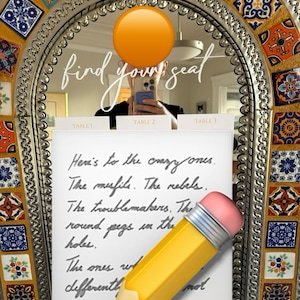 find your seat
TABLE 1 TABLE 2 TABLE 3
Here's to the crazy ones.
The misfits. The rebels.
The troublemakers. The
round pegs in the
holes.
The ones
different not